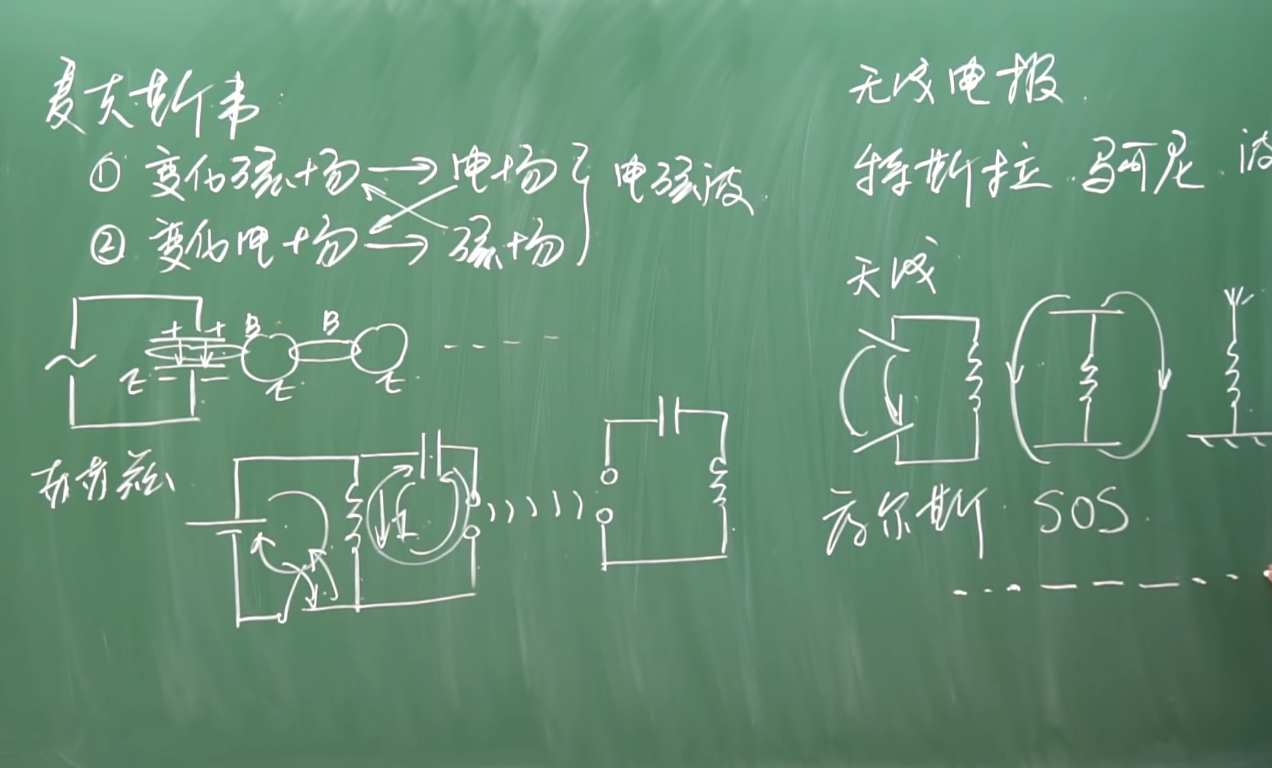 麦克斯韦
① 变化磁场 → 电场 } 电磁波
② 变化电场 → 磁场
+ + B B
E - - E E
赫兹
I
无线电报
特斯拉 马可尼 波
天线
莫尔斯 SOS
... — — — ...